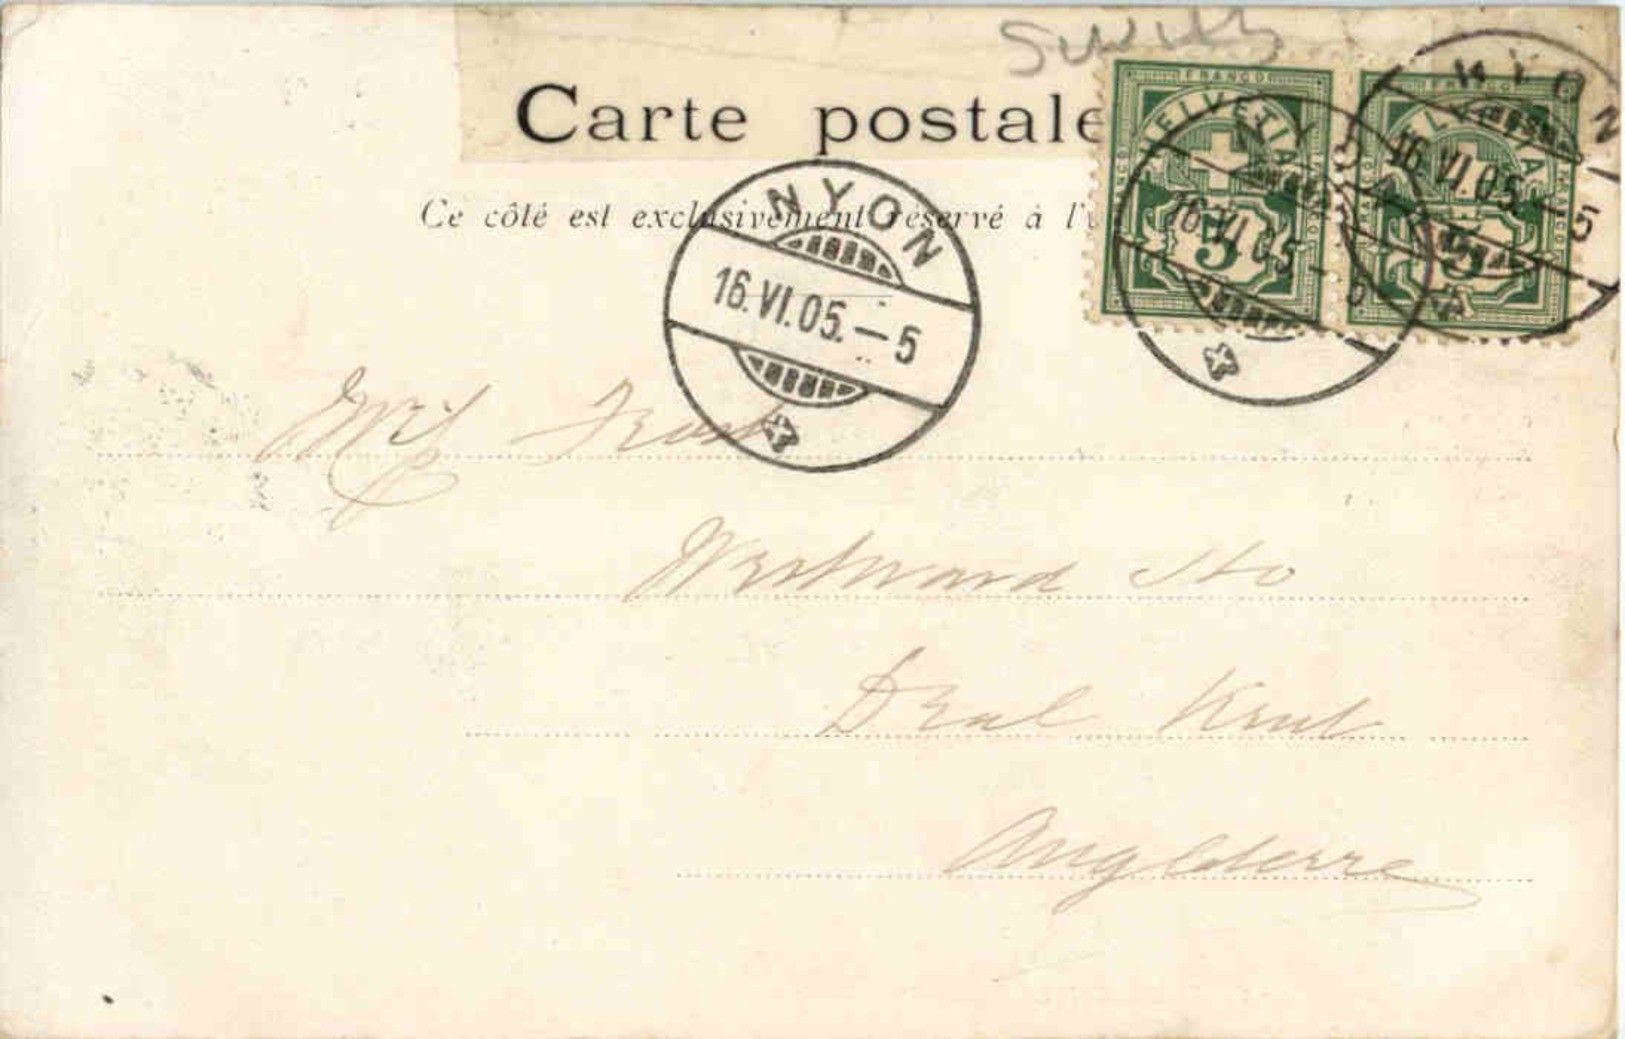 Switz
Carte postale
Ce côté est exclusivement réservé à l'
FRANCO
HELVETIA
5
FRANCO
HELVETIA
5
NYON
16.VI.05.-5
NYON
16.VI.05.-5
NYON
16.VI.05.-5
Frost
Westward Ho
Deal Kent
Angleterre